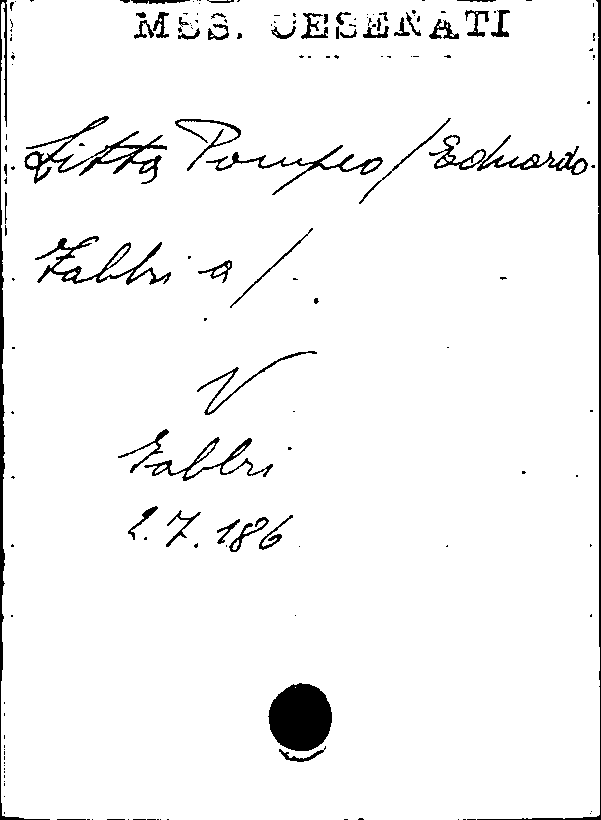 MSS. CESENATI
Litta Pompeo / Eduardo
Fabbri a / .
V
Fabbri
2.7.186